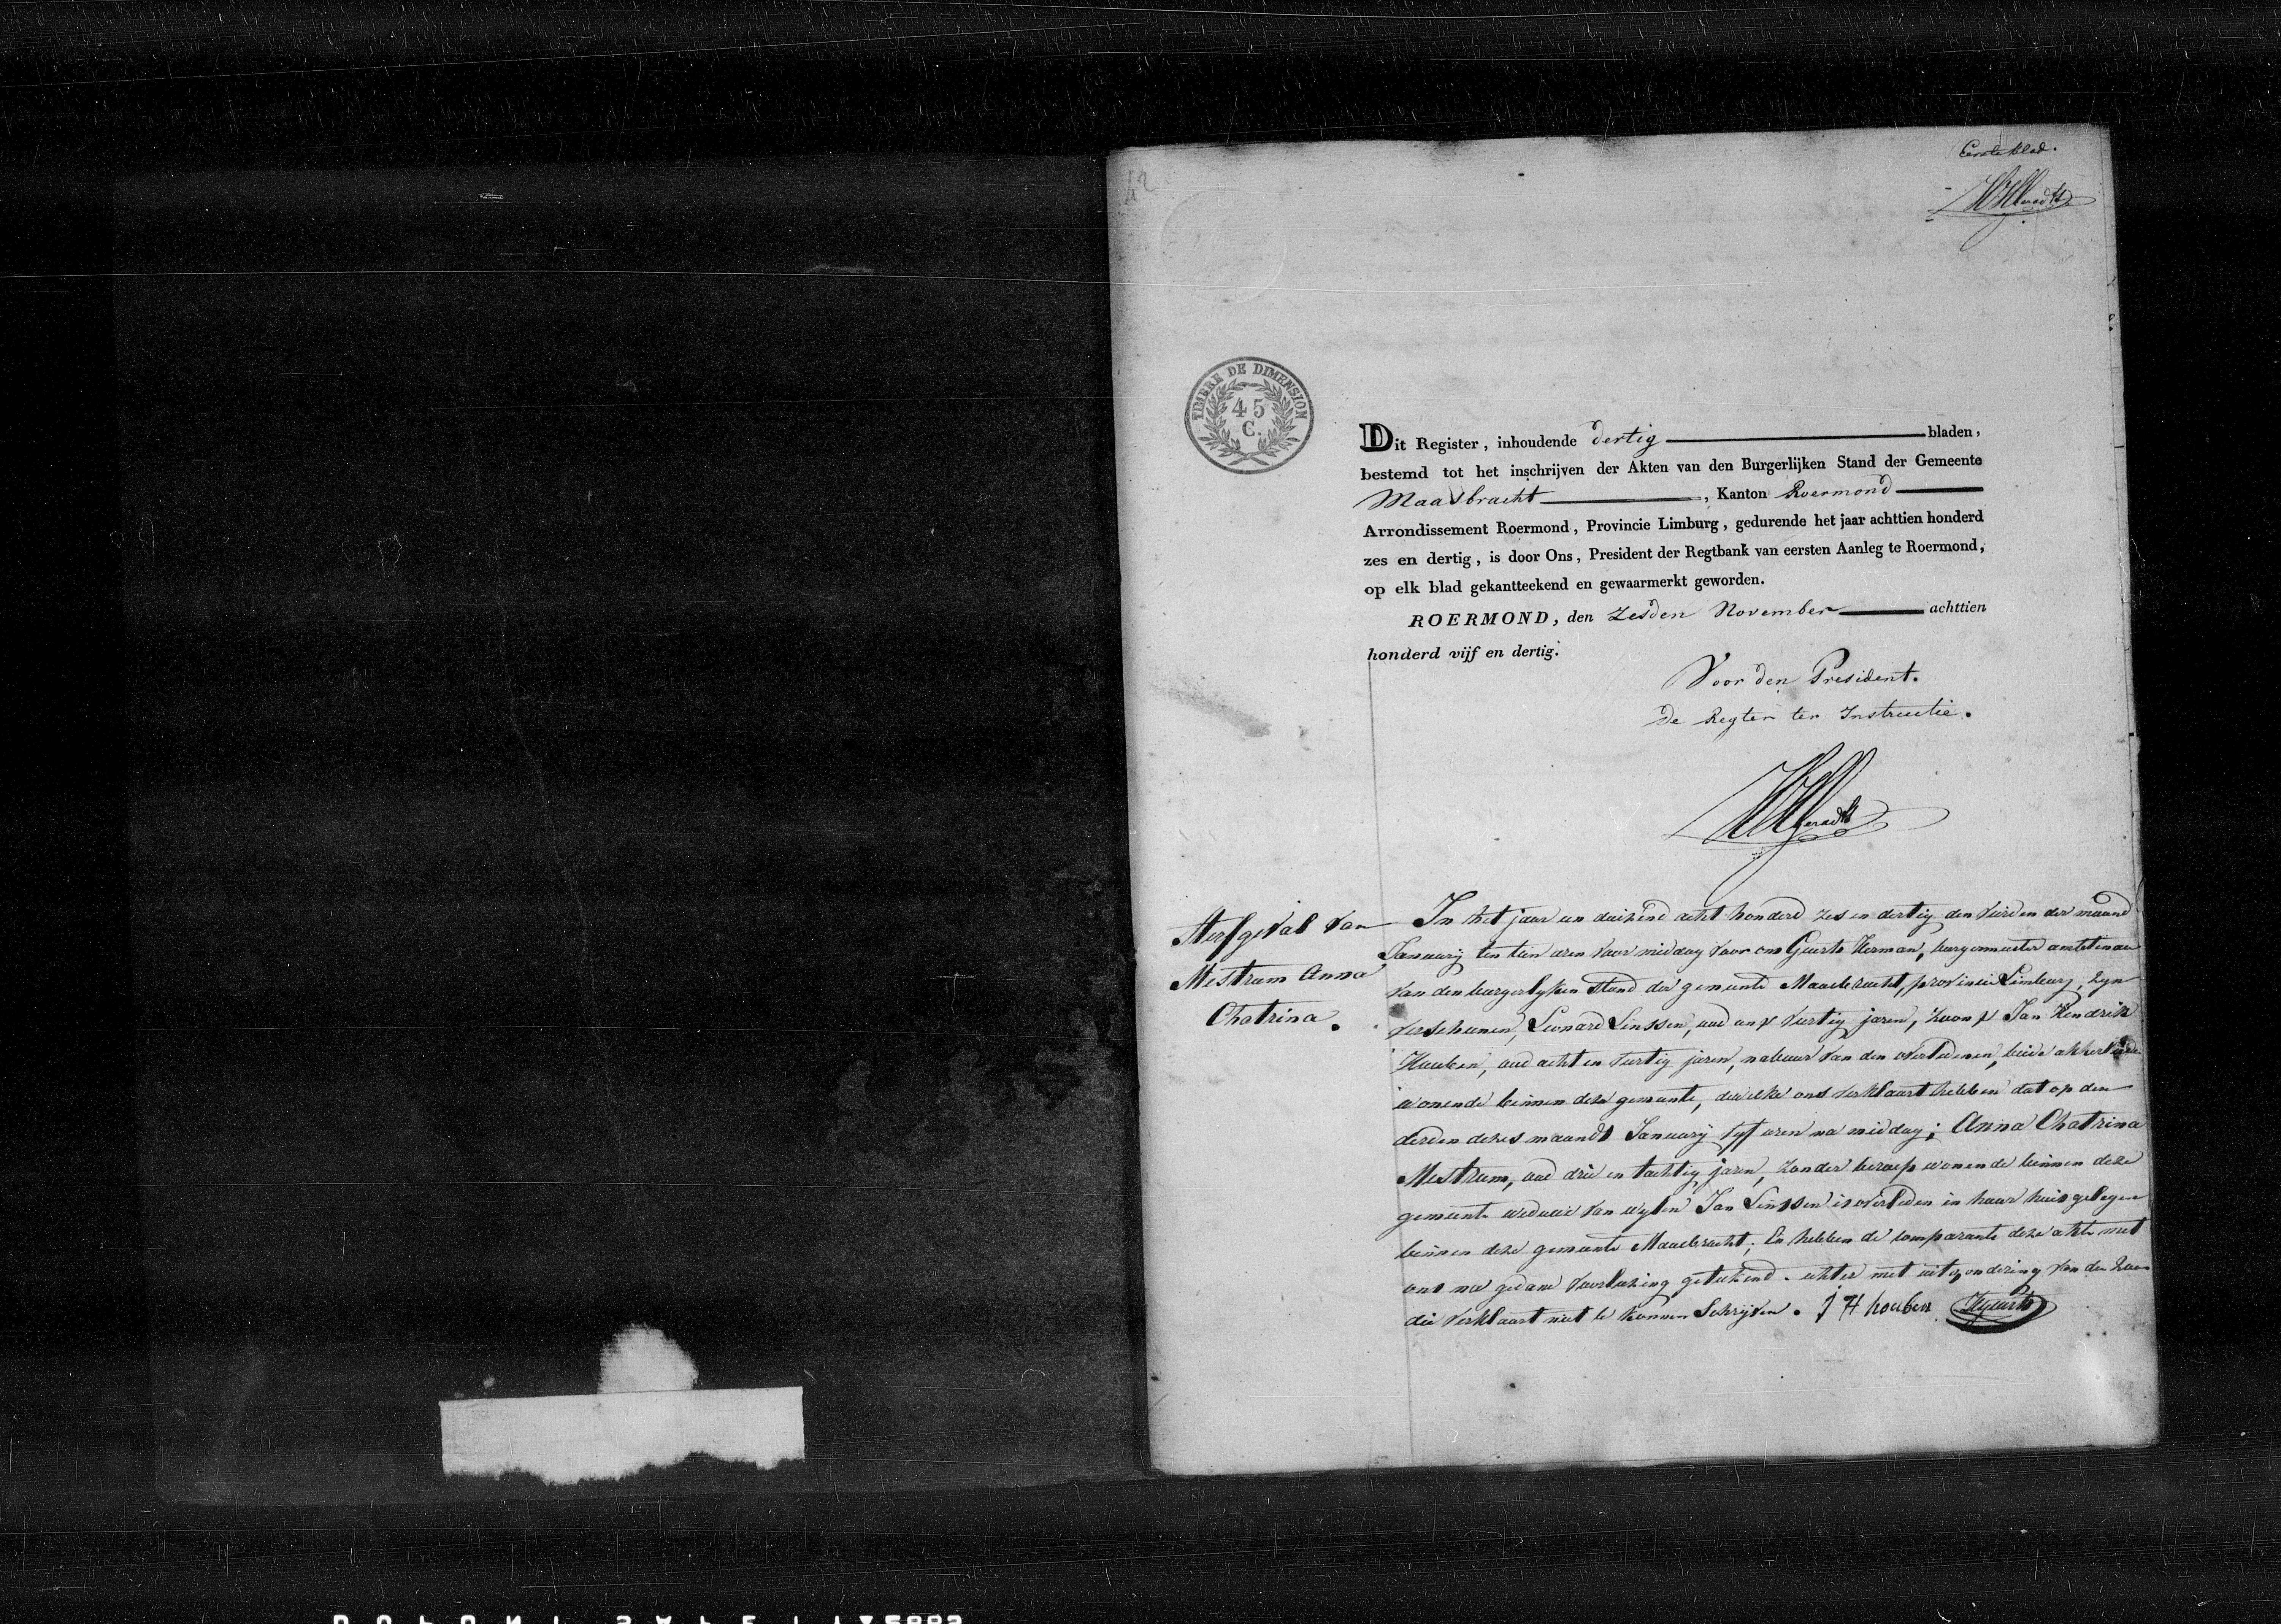 42
Eerste blad.
TIMBRE DE DIMENSION
45
C.
Dit Register, inhoudende dertig bladen,
bestemd tot het inschrijven der Akten van den Burgerlijken Stand der Gemeente
Maasbracht, Kanton Roermond
Arrondissement Roermond, Provincie Limburg, gedurende het jaar achttien honderd
zes en dertig, is door Ons, President der Regtbank van eersten Aanleg te Roermond,
op elk blad gekantteekend en gewaarmerkt geworden.
ROERMOND, den Zesden November achttien
honderd vijf en dertig.
Voor den President.
De Regter ter Instructie.
Sterfgeval van
Mestrum Anna
Chatrina.
In het jaar een duizend acht honderd zes en dertig den vierden der maand
January ten tien uren voor middag voor ons Geurts Herman, burgemeester ambtenaar
van den burgerlyken stand der gemeente Maasbracht, provincie Limburg, zyn
verschenen, Leonard Linssen, oud en veertig jaren, zoon & Jan Hendrik
Houben, oud acht en veertig jaren, nabuur van den overledenen, beide akkerlieden
wonende binnen deze gemeente, dewelke ons verklaart hebben dat op den
derden dezes maands January vyf uren na middag; Anna Chatrina
Mestrum, oud drie en tachtig jaren, zonder beroep wonende binnen deze
gemeente weduwe van wylen Jan Linssen is overleden in haar huis gelegen
binnen deze gemeente Maasbracht; En hebben de comparante deze akte met
ons na gedane voorlezing getekend. echter met uitzondering van den zoon
die verklaart niet te konnen Schryven. J H houben HGeurts